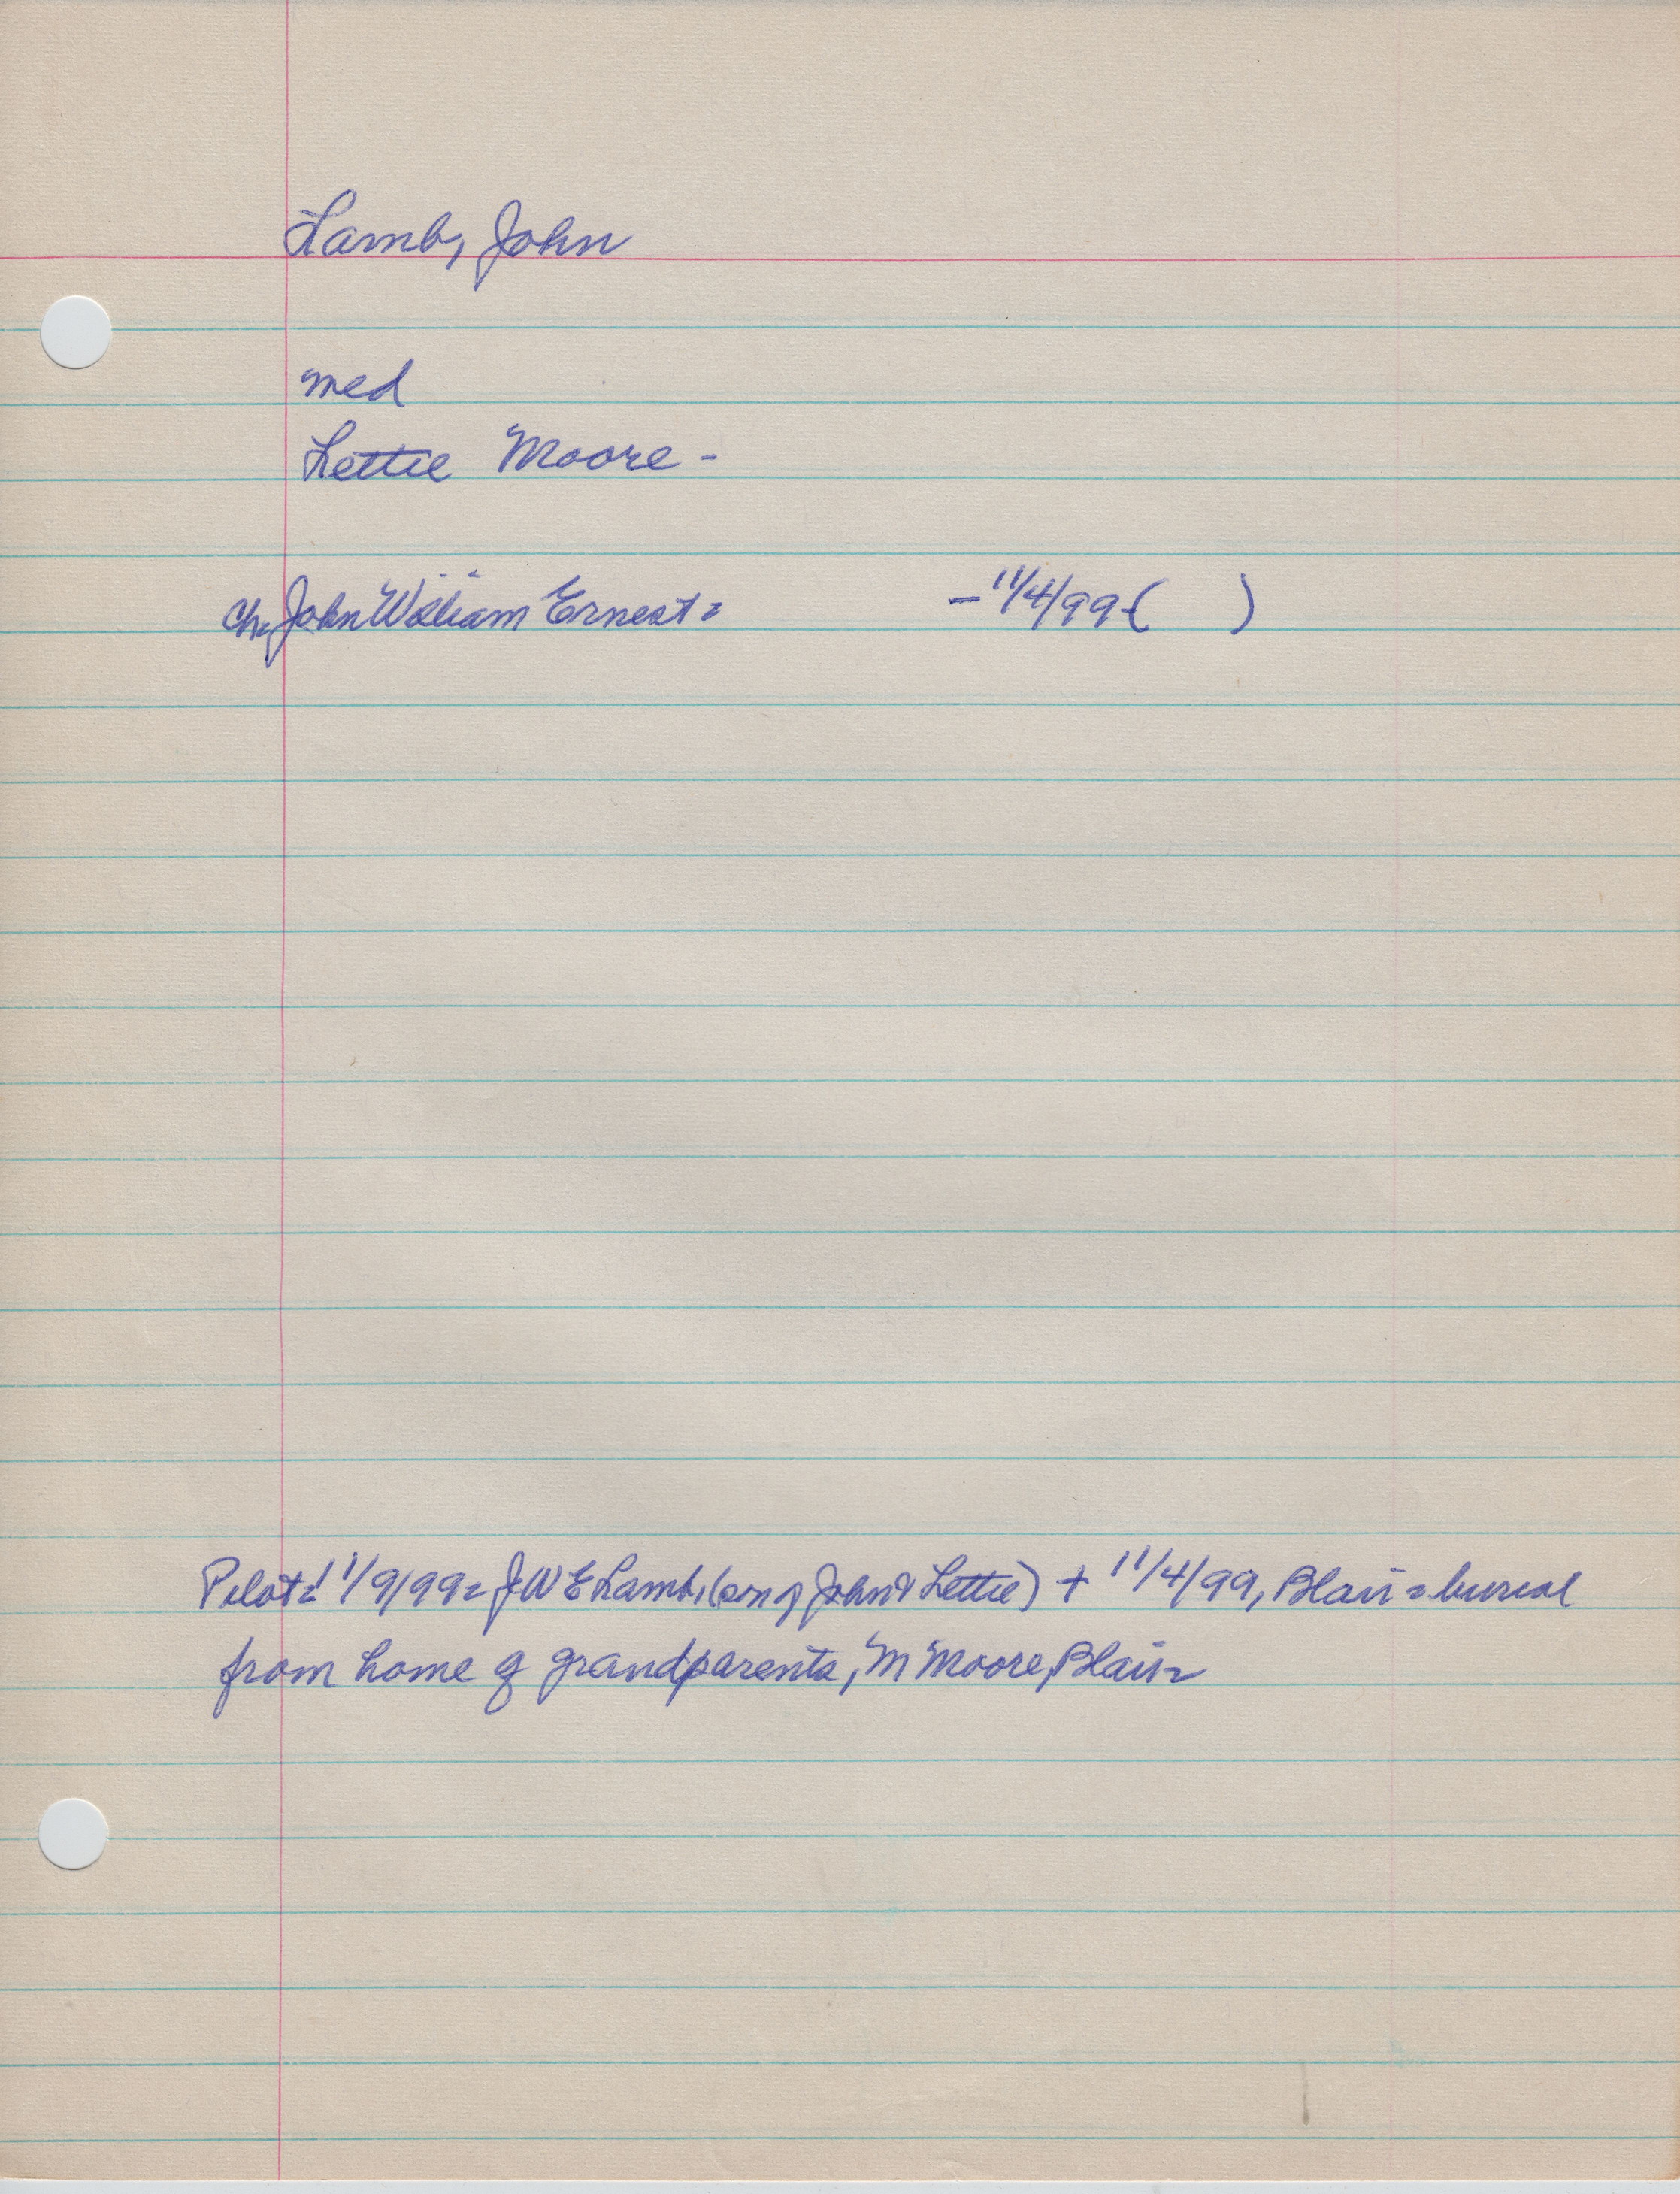 Lamb, John
med
Lettie Moore -
Ch: John William Ernest = - 11/4/99 - ( )
Pilot: 11/9/99 = J W E Lamb, (son of John & Lettie) + 11/4/99, Blair = burial
from home of grandparents, M Moore, Blair